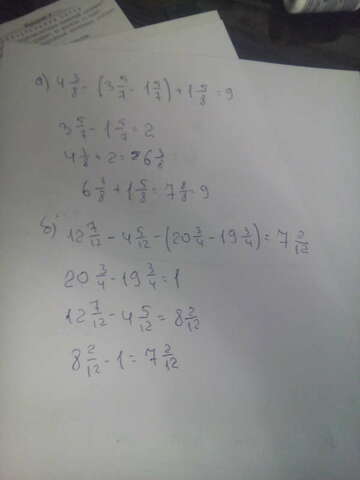 а) 4 3/8 - (3 5/7 - 1 5/7) + 1 5/8 = 9
3 5/7 - 1 5/7 = 2
4 3/8 + 2 = 6 3/8
6 3/8 + 1 5/8 = 7 8/8 = 9
б) 12 7/12 - 4 5/12 - (20 3/4 - 19 3/4) = 7 2/12
20 3/4 - 19 3/4 = 1
12 7/12 - 4 5/12 = 8 2/12
8 2/12 - 1 = 7 2/12